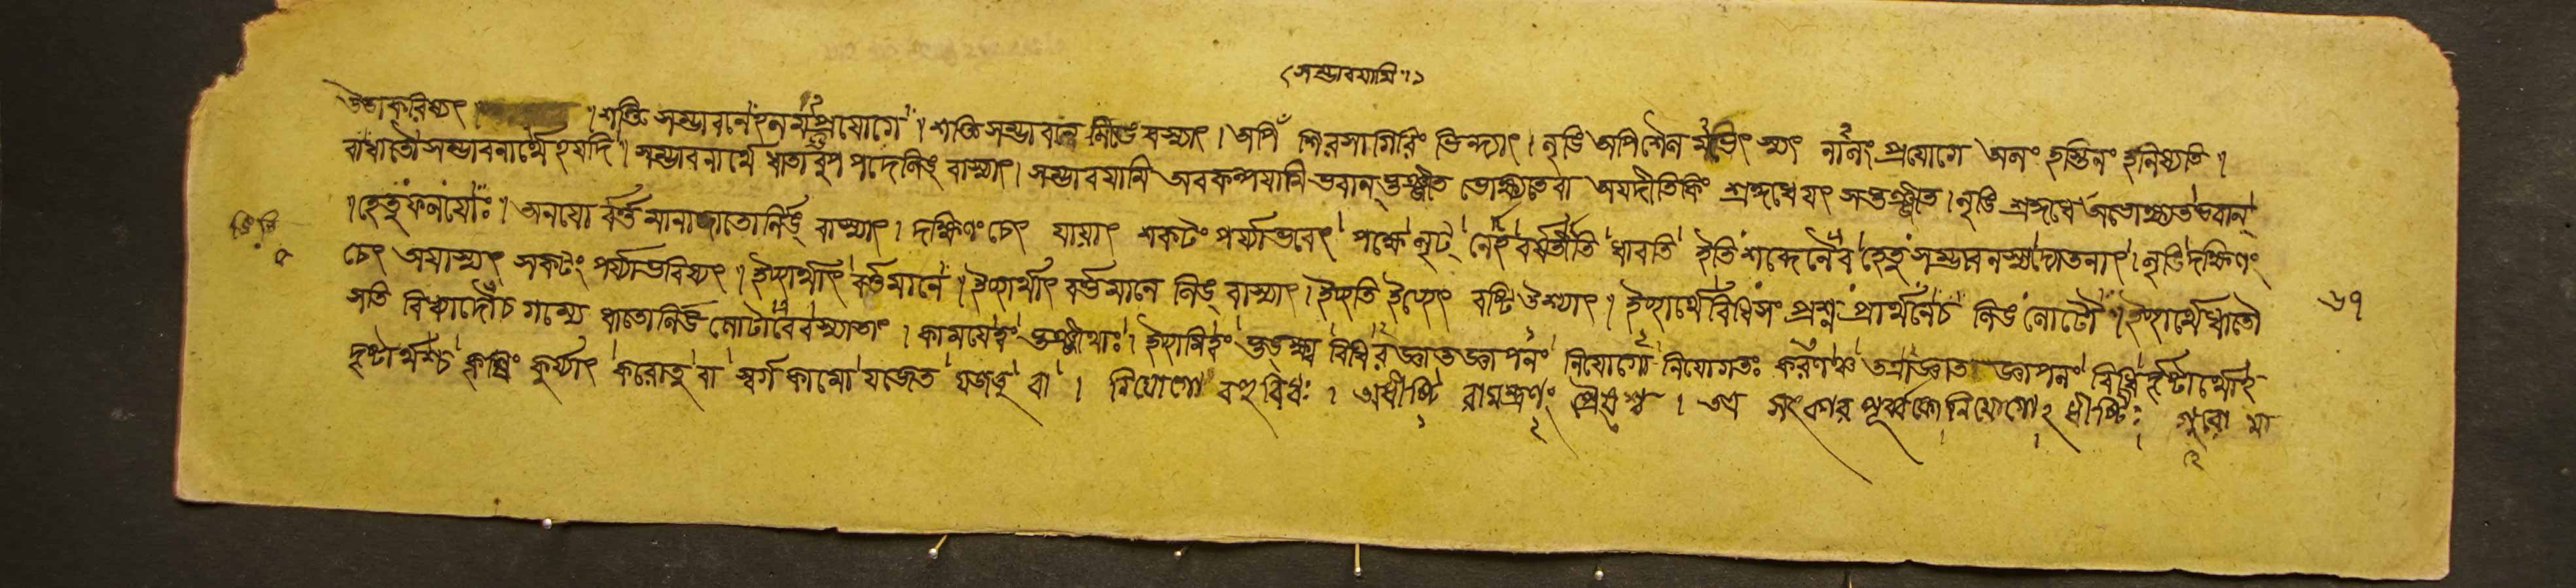 (সম্ভাবয়ামি।)
উতাকরিষ্যৎ। । শক্তি সম্ভাবনেঽনর্মপ্রয়োগে। শক্তি সম্ভাবনে লিঙেবস্যাৎ। অপি শিরসাগিরিং ভিন্দ্যাৎ। লৃঙি অপিশৈলমভেৎস্যৎ নালং প্রয়োগে অলং হস্তিনং হনিষ্যতি।
বাধাতৌসম্ভাবনার্থেঽযদি। সম্ভাবনার্থে ধাতাবুপপদেলিঙ্ বাস্যাৎ। সম্ভাবয়ামি অবকল্পয়ামি ভবান্ ভুঞ্জীত ভোক্ষ্যতেবা অযদীতিকিং শ্রদ্দধেযৎ সভুঞ্জীত। লৃঙি শ্রদ্দধে অভোক্ষ্যতভবান্
। হেতুফলয়োঃ। অনযো র্বর্ত্তমানাদ্ধাতোর্লিঙ্ বাস্যাৎ। দক্ষিণং চেৎ যায়াৎ শকটং পর্য্যাভবেৎ পক্ষে লৃট্ নেহ বর্ষতীতি ধাবতি ইতি শব্দেনৈব হেতু সম্ভাবনস্যদ্যোতনাৎ। লৃঙিদক্ষিণং
চেৎ অযাস্যৎ শকটং পর্য্যাভবিষ্যৎ। ইচ্ছার্থাৎ বর্ত্তমানে। ইচ্ছার্থাৎ বর্ত্তমানে লিঙ্ বাস্যাৎ। ইচ্ছতি ইচ্ছেৎ বষ্টি উশ্যাৎ। ইচ্ছার্থেবিধিসংপ্রশ্ন প্রার্থনেচ লিঙলোটৌ। ইচ্ছার্থেধাতৌ
সতি বিধ্যাদৌচ গম্যে ধাতোর্লিঙলোটাবেবস্যাতাং। কাময়েহং ভুঞ্জীথাঃ। ইচ্ছামিহং ভুঙ্ক্ষ্ব বিধিরজ্ঞাতজ্ঞাপনং নিয়োগো নিয়োগতঃ করণঞ্চ তত্রাজ্ঞাত জ্ঞাপনং বিধির্দৃষ্টার্থোঽ
দৃষ্টার্থশ্চ কৃষিং কুর্য্যাৎ করোতু বা স্বর্গ কামো যজেত যজতু বা। নিয়োগো বহুবিধঃ। অধীষ্টি রামন্ত্রণং প্রৈষশ্চ। তত্র সৎকার পূর্ব্বকোনিয়োগোঽধীষ্টিঃ গুরো মা
৬৭